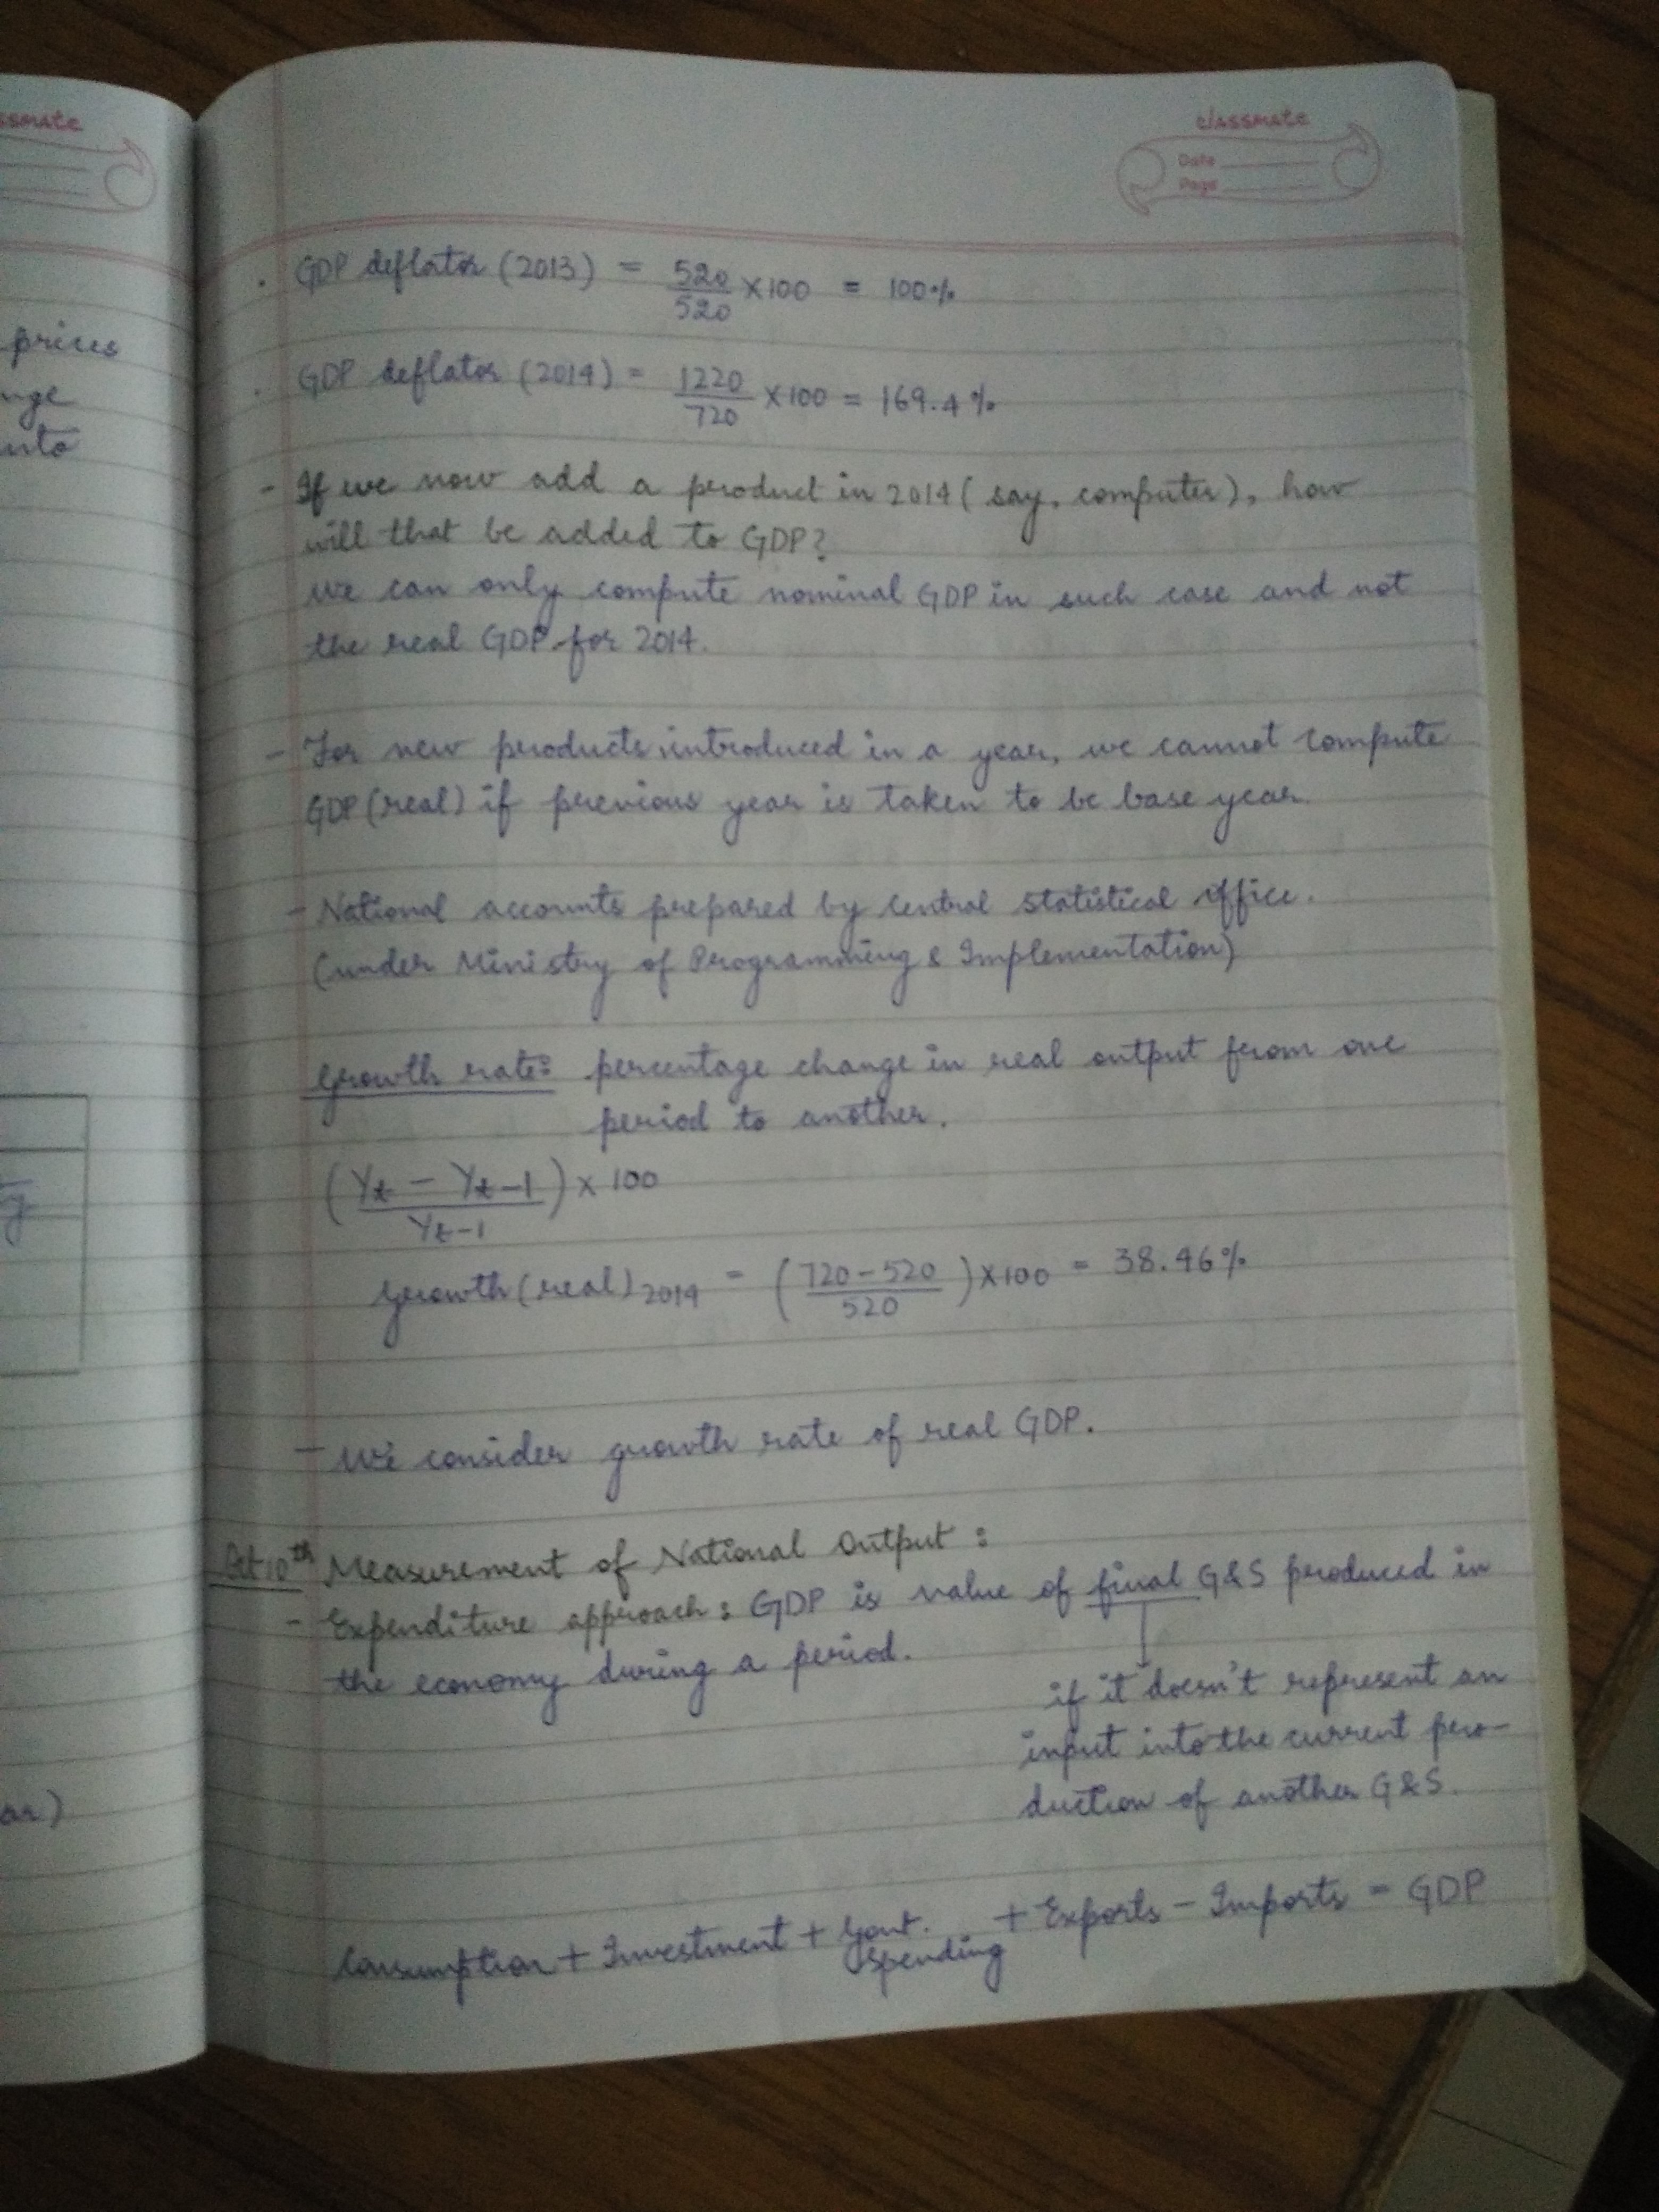 ssmate
prices
nge
nto
ar)
classmate
Date
Page
. GDP deflator (2013) = 520/520 × 100 = 100%
. GDP deflator (2014) = 1220/720 × 100 = 169.4%
- If we now add a product in 2014 (say, computer), how
will that be added to GDP?
We can only compute nominal GDP in such case and not
the real GDP for 2014.
- For new products introduced in a year, we cannot compute
GDP (real) if previous year is taken to be base year.
- National accounts prepared by Central Statistical Office.
(under Ministry of Programming & Implementation)
Growth rate: percentage change in real output from one
period to another.
(Yt - Yt-1 / Yt-1) × 100
Growth (real) 2014 = (720-520 / 520) × 100 = 38.46%
- We consider growth rate of real GDP.
Oct 10th Measurement of National Output :
- Expenditure approach : GDP is value of final G&S produced in
the economy during a period.
if it doesn't represent an
input into the current pro-
duction of another G&S.
Consumption + Investment + Govt. spending + Exports - Imports = GDP